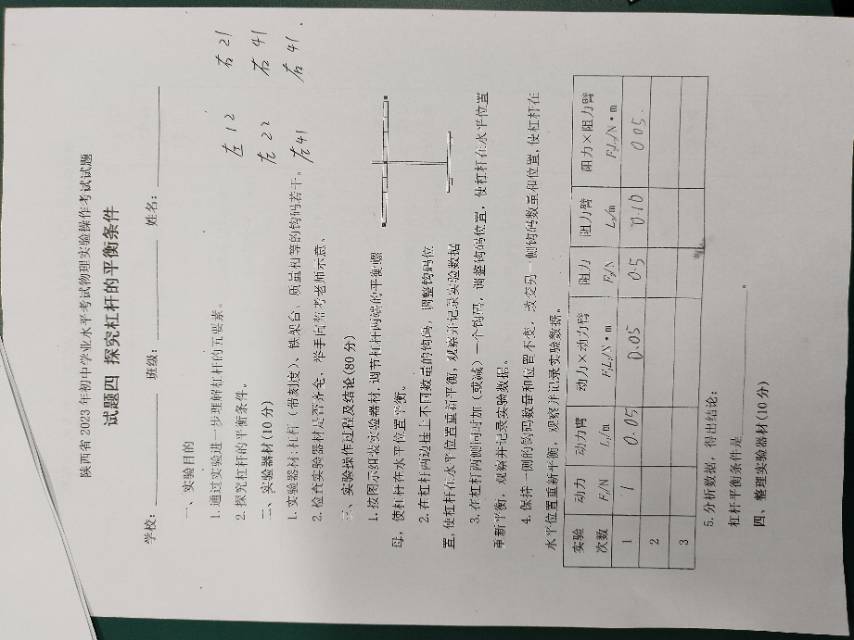 陕西省2023年初中学业水平考试物理实验操作考试试题
试题四 探究杠杆的平衡条件
学校： 班级： 姓名：
一、实验目的
1.通过实验进一步理解杠杆的五要素。
2.探究杠杆的平衡条件。
二、实验器材(10分)
1.实验器材:杠杆（带刻度）、铁架台、质量相等的钩码若干。
2.检查实验器材是否齐全，举手向监考老师示意。
左12 右21
左22 右41
左41 右41.
三、实验操作过程及结论(80分)
1.按图示组装实验器材,调节杠杆两端的平衡螺
母，使杠杆在水平位置平衡。
2.在杠杆两边挂上不同数量的钩码，调整钩码位
置,使杠杆在水平位置重新平衡，观察并记录实验数据
3.在杠杆两侧同时加（或减）一个钩码，调整钩码位置，使杠杆在水平位置
重新平衡，观察并记录实验数据。
4.保持一侧的钩码数量和位置不变，改变另一侧钩码数量和位置,使杠杆在
水平位置重新平衡，观察并记录实验数据。
实验次数 动力F₁/N 动力臂L₁/m 动力×动力臂F₁L₁/N·m 阻力F₂/N 阻力臂L₂/m 阻力×阻力臂F₂L₂/N·m
1 1 0.05 0.05 0.5 0.10 0.05
2
3
5.分析数据，得出结论：
杠杆平衡条件是 。
四、整理实验器材(10分)